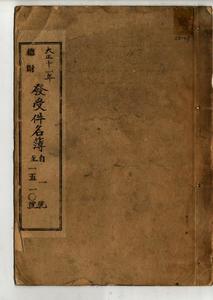 大正十一年
總財
發受件名簿
自一號
至一五一〇號